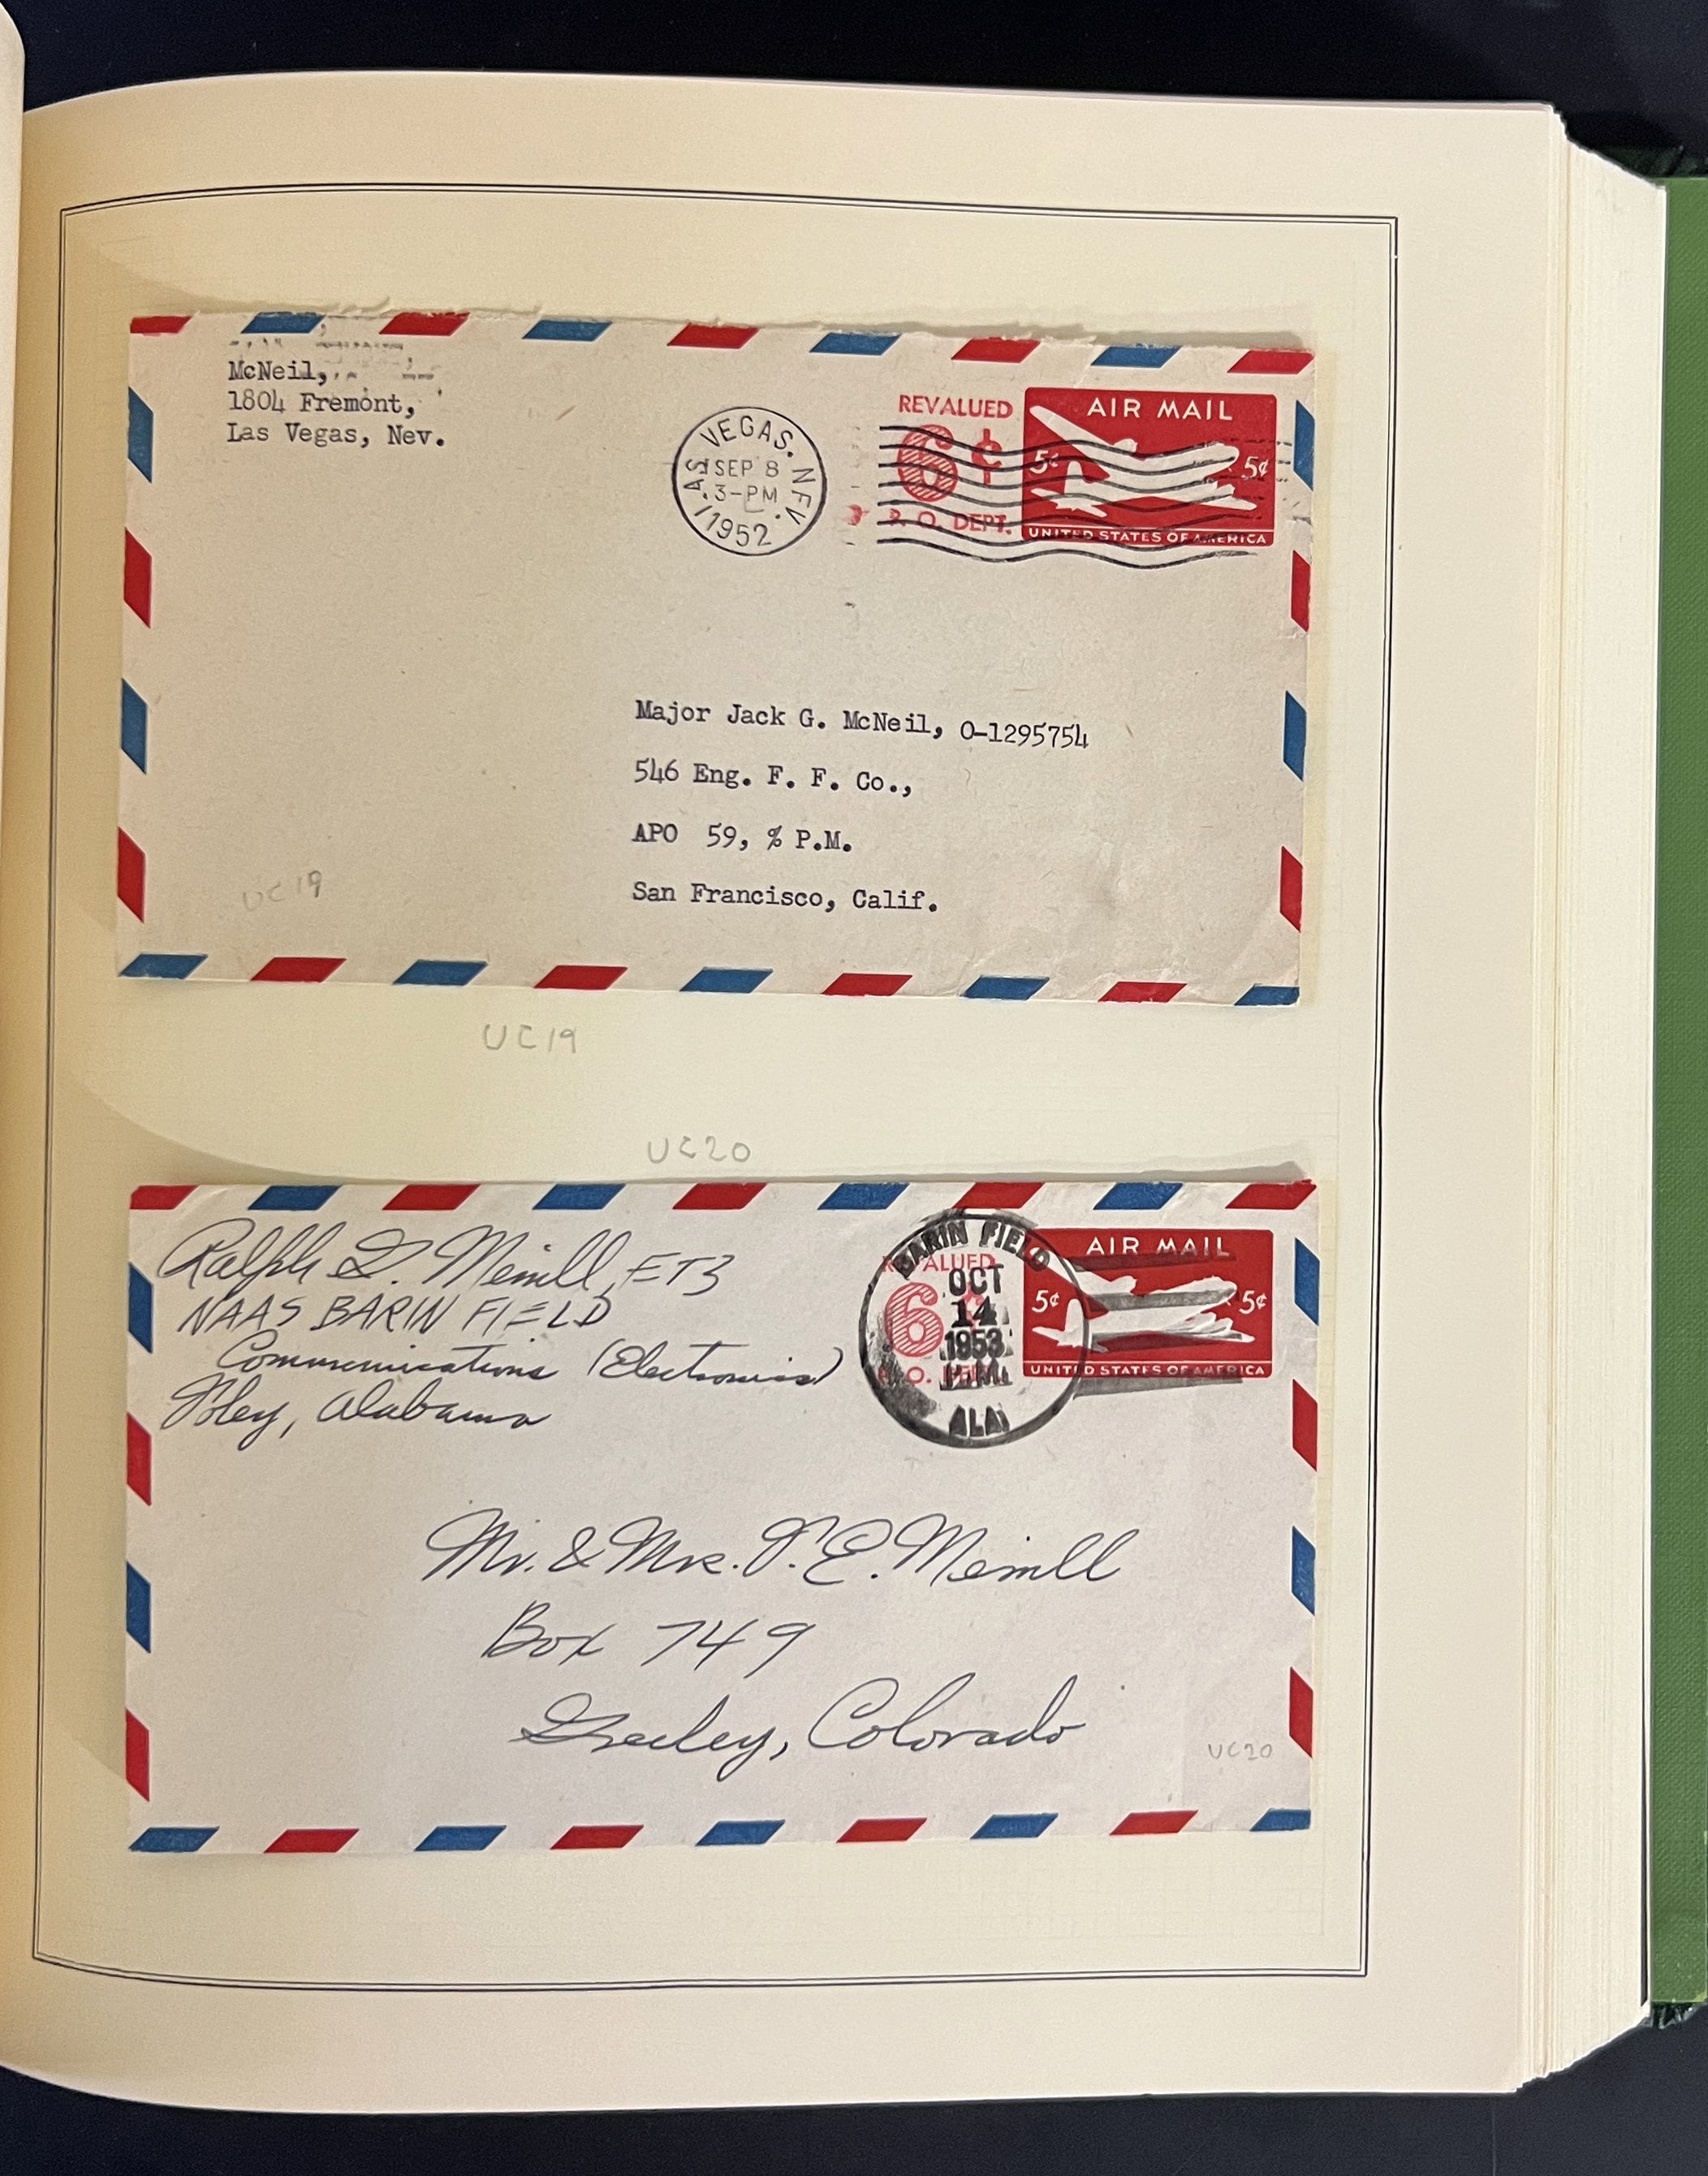 McNeil,
1804 Fremont,
Las Vegas, Nev.
VEGAS. NEV.
SEP 8
3-PM
1952
REVALUED
6¢
P. O. DEPT.
AIR MAIL
5¢ 5¢
UNITED STATES OF AMERICA
Major Jack G. McNeil, O-1295754
546 Eng. F. F. Co.,
APO 59, % P.M.
San Francisco, Calif.
UC19
UC19
UC20
Ralph D. Merrill, ET3
NAAS BARIN FIELD
Communications (Electronics)
Foley, Alabama
BARIN FIELD
OCT
14
1953
ALA
REVALUED
6
AIR MAIL
5¢ 5¢
UNITED STATES OF AMERICA
Mr. & Mrs. P. E. Merrill
Box 749
Greeley, Colorado
UC20